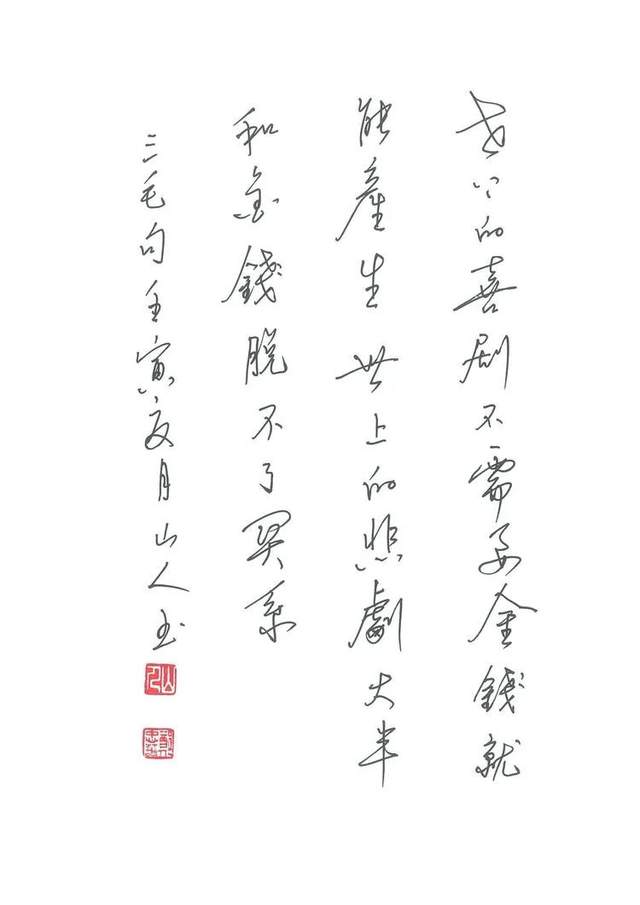 世上的喜剧不需要金錢就
能產生世上的悲劇大半
和金錢脱不了関系
三毛句壬寅夏月山人书
山人